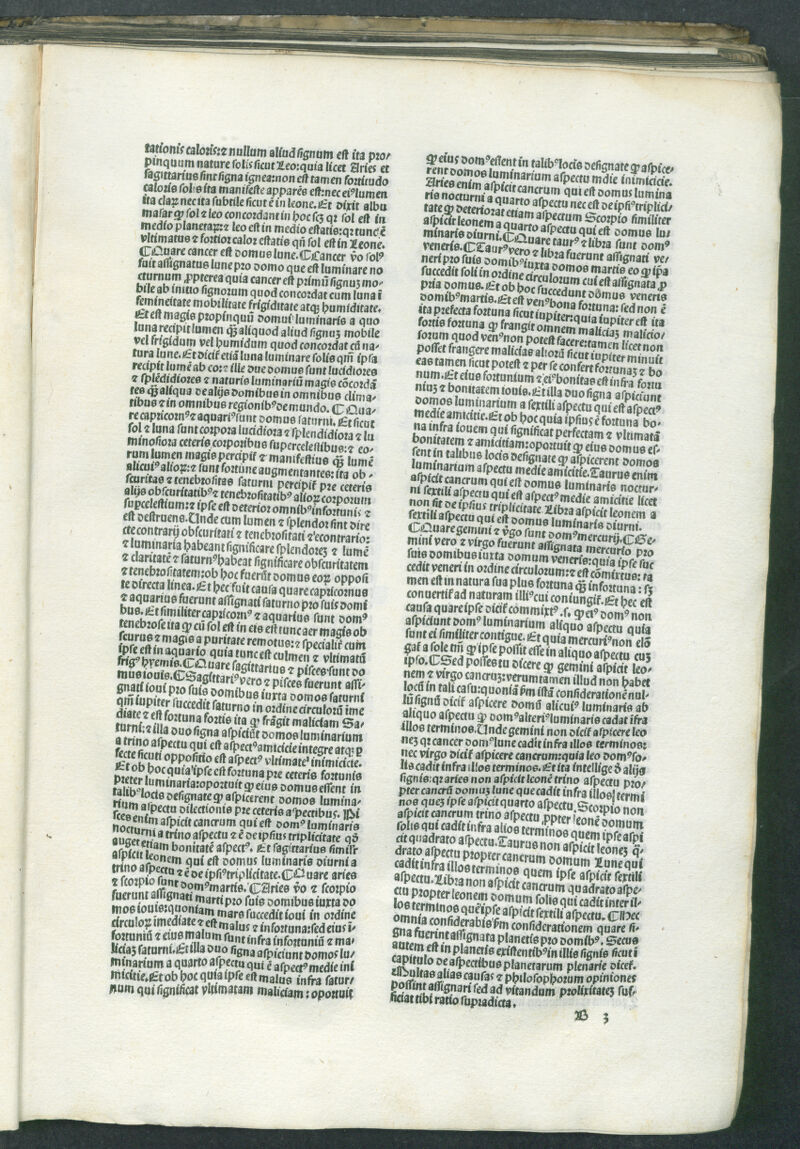 tationis caloris: ⁊ nullum aliud signum est ita pro/
pinquum nature solis sicut Leo: quia licet Aries et
sagittarius sint signa ignea: non est tamen fortitudo
caloris solis ita manifeste apparēs est: nec ei⁹ lumen
ita clarꝝ nec ita subtile sicut ē in leone. Et dixit albu
masar ꝙ sol ⁊ leo concordant in hoc scꝫ qꝛ sol est in
medio planetaꝝ: ⁊ leo est in medio estatis: qꝛ tunc ē
vltimatus ⁊ fortior calor estatis qñ sol est in Leone.
¶Quare cancer est domus lune. ¶Cancer v̄o sol⁹
fuit assignatus lune pro domo que est luminare no
cturnum ꝓpterea quia cancer est primū signuꝫ mo/
bile ab initio signorum quod concordat cum luna ī
femineitate mobilitate frigiditate atqꝫ humiditate.
Et est magis propinquum domui luminaris a quo
luna recipit lumen q̄ꝫ aliquod aliud signuꝫ mobile
vel frigidum vel humidum quod concordat cū na/
tura lune. Et dicit̄ etiā luna luminare solis qm̄ ipsa
recipit lumē ab eo: ⁊ ille due domus sunt lucidiores
⁊ splēdidiores ⁊ naturis luminariū magis cōcordā
tes q̄ꝫ aliqua de alijs domibus in omnibus clima/
tibus ⁊ in omnibus regionib⁹ de mundo. ¶Qua/
re capricorn⁹ ⁊ aquari⁹ sunt domus saturni. Et sicut
sol ⁊ luna sunt corpora lucidiora ⁊ splendidiora ⁊ lu
minosiora ceteris corporibus supercelestibus: ⁊ eo/
rum lumen magis percipit̄ ⁊ manifestius q̄ꝫ lumē
alicui⁹ alioꝝ: ⁊ sunt fortune augmentantes: ita ob/
scuritas ⁊ tenebrositas saturni percipit̄ pre ceteris
alijs obscuritatib⁹ ⁊ tenebrositatib⁹ alioꝝ corporum
supcelestium: ⁊ ipse est deterior omnib⁹ infortunis ⁊
est destruens. Unde cum lumen ⁊ splendor sint dire
cte contrarij obscuritati ⁊ tenebrositati ⁊ econtrario:
⁊ luminaria habeant significare splendoreꝫ ⁊ lumē
⁊ claritatē ⁊ saturn⁹ habeat significare obscuritatem
⁊ tenebrositatem: ob hoc fuerūt domus eoꝝ opposi
te directa linea. Et hec fuit causa quare capricornus
⁊ aquarius fuerunt assignati saturno pro suis domi
bus. Et similiter capricorn⁹ ⁊ aquarius sunt dom⁹
tenebrose ita ꝙ cū sol est in eis est tunc aer magis ob
scurus ⁊ magis a puritate remotus: ⁊ specialit̄ cum
ipse est in aquario quia tunc est culmen ⁊ vltimatū
frig⁹ hyemis. ¶Quare sagittarius ⁊ pisces sunt do
mus iouis. ¶Sagittari⁹ vero ⁊ pisces fuerunt assi/
gnati ioui pro suis domibus iuxta domos saturni
qm̄ iupiter succedit saturno in ordine circuloꝝ ime
diate ⁊ est fortuna fortis ita ꝙ frāgit maliciam Sa/
turni: ⁊ illa duo signa aspiciūt domos luminarium
a trino aspectu qui est aspect⁹ amicicie integre atqꝫ ꝑ
fecte sicuti oppositio est aspect⁹ vltimate inimicicie.
Et ob hoc quia ipse est fortuna pre ceteris fortunis
preter luminaria: oportuit ꝙ eius domus essent in
talib⁹ locis designate ꝙ aspicerent domos lumina/
rium aspectu dilectionis pre ceteris aspectibus. Pi
sces enim aspicit cancrum qui est dom⁹ luminaris
nocturni a trino aspectu ⁊ ē de ipsius triplicitate qđ
auget etiam bonitatē aspect⁹. Et sagittarius similr̄
aspicit leonem qui est domus luminaris diurni a
trino aspectu ⁊ ē de ipsi⁹ triplicitate. ¶Quare aries
⁊ scorpio sunt dom⁹ martis. ¶Aries v̄o ⁊ scorpio
fuerunt assignati marti pro suis domibus iuxta do
mos iouis: quoniam mars succedit ioui in ordine
circuloꝝ imediate ⁊ est malus ⁊ infortuna: sed eius ī
fortuniū ⁊ eius malum sunt infra infortuniū ⁊ ma/
liciaꝫ saturni. Et illa duo signa aspiciunt domos lu/
minarium a quarto aspectu qui ē aspect⁹ medie ini
micitie. Et ob hoc quia ipse est malus infra satur/
num qui significat vltimatam maliciam: oportuit
ꝙ eius dom⁹ essent in talib⁹ locis designate ꝙ aspice/
rent domos luminarium aspectu mdie inimicicie.
Aries enim aspicit cancrum qui est domus lumina
ris nocturni a quarto aspectu nec est de ipsi⁹ triplici/
tate ꝙ deteriorat etiam aspectum Scorpio similiter
aspicit leonem a quarto aspectu qui est domus lu/
minaris diurni. ¶Quare taur⁹ ⁊ libra sunt dom⁹
veneris. ¶Taur⁹ vero ⁊ libra fuerunt assignati ve/
neri pro suis domib⁹ iuxta domos martis eo ꝙ ip̄a
succedit soli in ordine circulorum cui est assignata ꝓ
pria domus. Et ob hoc succedunt dōmus veneris
domib⁹ martis. Et est ven⁹ bona fortuna: sed non ē
ita prefecta fortuna sicut iupiter: quia iupiter est ita
fortis fortuna ꝙ frangit omnem maliciaꝫ malicio/
sorum quod ven⁹ non potest facere: tamen licet non
posset frangere malicias alioꝝ sicut iupiter minuit
eas tamen sicut potest ⁊ per se confert fortunaꝫ ⁊ bo
num. Et eius fortunium ⁊ ei⁹ bonitas est infra fortu
niuꝫ ⁊ bonitatem iouis. Et illa duo signa aspiciunt
domos luminarium a sextili aspectu qui est aspect⁹
medie amicitie. Et ob hoc quia ipsi⁹ ē fortuna bo/
na infra iouem qui significat perfectam ⁊ vltimatā
bonitatem ⁊ amicitiam: oportuit ꝙ eius domus es/
sent in talibus locis designate ꝙ aspicerent domos
luminarium aspectu medie amicitie. Taurus enim
aspicit cancrum qui est domus luminaris noctur/
ni sextili aspectu qui est aspect⁹ medie amicitie licet
non sit de ipsius triplicitate Libra aspicit leonem a
sextili aspectu qui est domus luminaris diurni.
¶Quare gemini ⁊ v̄go sunt dom⁹ mercurij. ¶Ge/
mini vero ⁊ virgo fuerunt assignata mercurio pro
suis domibus iuxta domum veneris: quia ipse suc
cedit veneri in ordine circulorum: ⁊ est cōmixtus: ta
men est in natura sua plus fortuna q̄ꝫ infortuna: sꝫ
conuertit̄ ad naturam illi⁹ cui coniungit̄. Et hec est
causa quare ipse dicit̄ commixt⁹. s. ꝙ ei⁹ dom⁹ non
aspiciunt dom⁹ luminarium aliquo aspectu quia
sunt ei similiter contigue. Et quia mercuri⁹ non elō
gat̄ a sole tm̄ ꝙ ipse possit esse in aliquo aspectu cuꝫ
ipso. ¶Sed posses tu dicere ꝙ gemini aspicit leo/
nem ⁊ virgo cancruꝫ: verumtamen illud non habet
locū in tali casu: quoniā ẜm istā considerationē nul/
lū signū dicit̄ aspicere domū alicui⁹ luminaris ab
aliquo aspectu ꝙ dom⁹ alteri⁹ luminaris cadat īfra
illos terminos. Unde gemini non dicit̄ aspicere leo
neꝫ qꝛ cancer dom⁹ lune cadit infra illos terminos:
nec virgo dicit̄ aspicere cancrum: quia leo dom⁹ so/
lis cadit infra illos terminos. Et ita intellige d̄ alijs
signis: qꝛ aries non aspicit leonē trino aspectu pro/
pter cancrū domuꝫ lune que cadit infra illos termi
nos queꝫ ipse aspicit quarto aspectu. Scorpio non
aspicit cancrum trino aspectu ꝓpter leonē domum
solis qui cadit infra alios terminos quem ipse aspi
cit quadrato aspectu. Taurus non aspicit leoneꝫ q̄/
drato aspectu propter cancrum domum Lune qui
cadit infra illos terminos quem ipse aspicit sextili
aspectu. Libra non aspicit cancrum quadrato aspe/
ctu propter leonem domum solis qui cadit inter il/
los terminos quē ipse aspicit sextili aspectu. ¶Hec
omnia considerabis ẜm considerationem quare si/
gna fuerint assignata planetis pro domib⁹. Secus
autem est in planetis existentib⁹ in illis signis sicut ī
capitulo de aspectibus planetarum plenarie dicet̄.
Multas alias causas ⁊ philosophorum opiniones
possint assignari sed ad vitandum prolixitateꝫ suf/
ficiat tibi ratio supradicta.
B 3